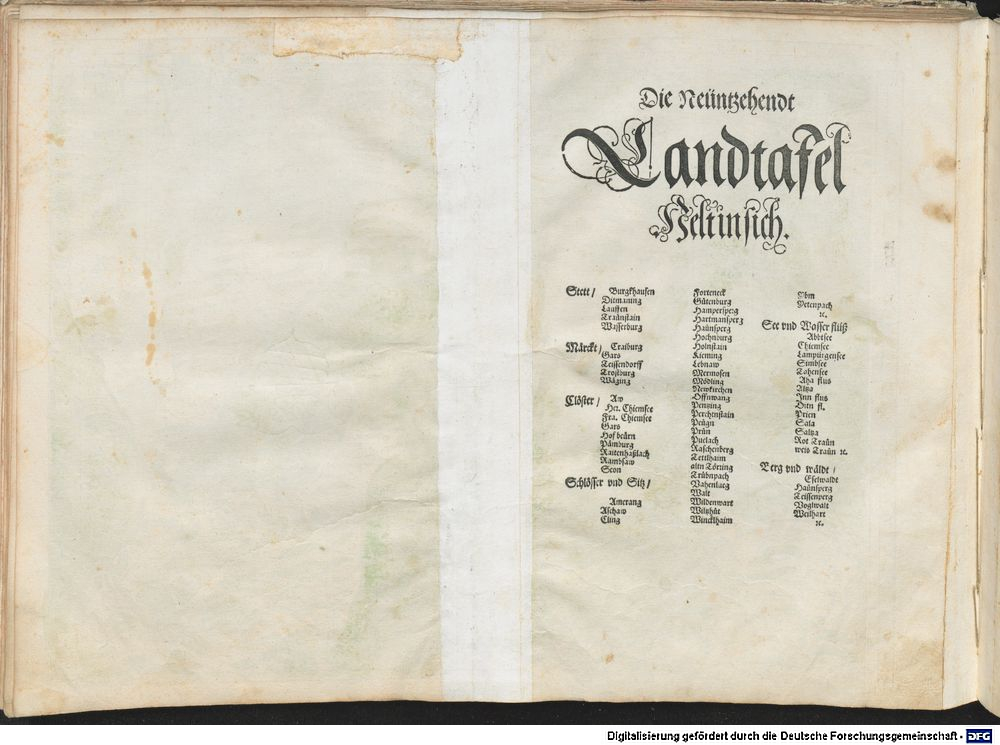 Die Neüntzehendt
Landtafel
Heltinsich.
Stett / Burgkhausen
Ditmaning
Lauffen
Traünstain
Wasserburg
Märckt / Craiburg
Gars
Teissendorff
Trostburg
Waging
Clöster / Aw
Her. Chiemsee
Fra. Chiemsee
Gars
Hof beürn
Pämburg
Raitenhaßlach
Rambsaw
Seon
Schlösser vnd Sitz /
Amerang
Aschaw
Cling
Forteneck
Gütenburg
Hampersperg
Hartmansperg
Haünsperg
Hochnburg
Holnstain
Kieming
Lebnaw
Mermosen
Mödling
Newkirchen
Offnwang
Pentzing
Perchtnstain
Peügn
Prün
Puelach
Raschenberg
Tettlhaim
altn Törring
Trübnpach
Wald
Wildenwart
Wincklhaim
Ybm
Yetenpach
ꝛc.
See vnd Wasser flüß
Abbtsee
Chiemsee
Lampurgensee
Simbsee
Tahensee
Aha flus
Altza
Inn flus
Ditn fl.
Prien
Sala
Saltza
Rot Traün
weis Traün ꝛc.
Perg vnd wäldt /
Eselwaldt
Haünsperg
Teissenperg
Voglwalt
Weilhart
ꝛc.
Digitalisierung gefördert durch die Deutsche Forschungsgemeinschaft - DFG